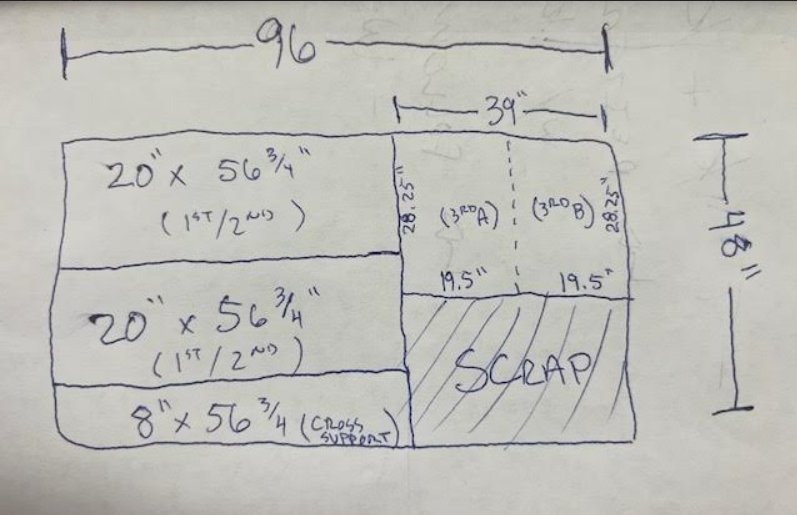 96
39"
20" x 56 3/4"
(1ST/2ND)
28.25"
(3RD A)
(3RD B)
28.25"
19.5"
19.5"
48"
20" x 56 3/4"
(1ST/2ND)
SCRAP
8" x 56 3/4 (CROSS
SUPPORT)